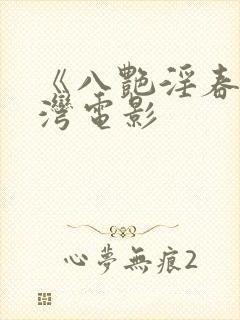 《八艷淫春
灣電影
心夢無痕2